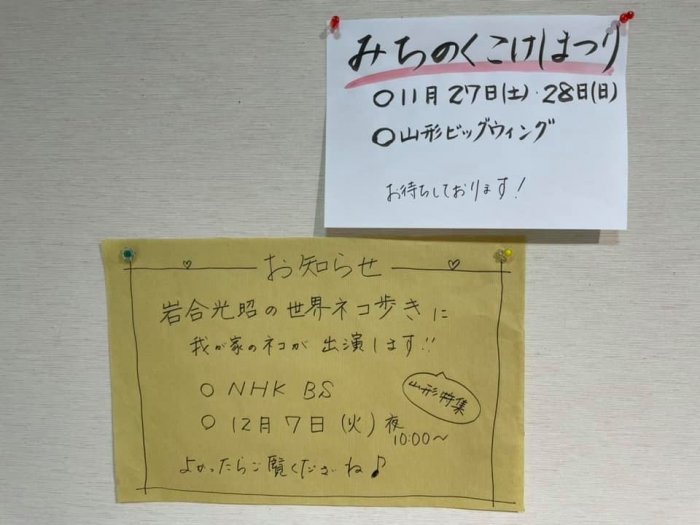 みちのくこけしまつり
○11月27日(土)・28日(日)
○山形ビッグウィング
お待ちしております!
お知らせ
岩合光昭の世界ネコ歩きに
我が家のネコが出演します!!
○NHK BS
山形特集
○12月7日(火)夜
10:00〜
よかったらご覧くださいね♪